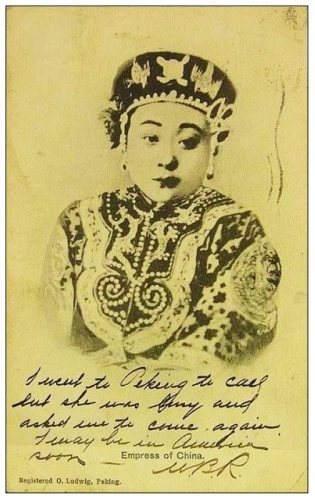 I went to Peking to call
but she was busy and
asked me to come again.
I may be in America
soon —
Empress of China.
W B R.
Registered O. Ludwig, Peking.